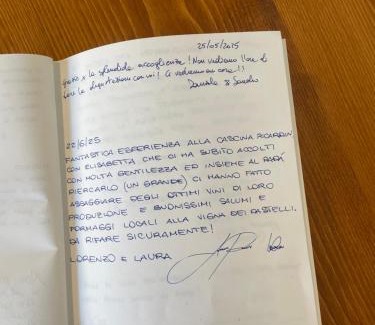 25/05/2025
Grazie x la splendida accoglienza! Non vediamo l'ora di
fare la degustazione con voi! Ci vedremo
Daniele & Sandro
22/6/25
FANTASTICA ESPERIENZA ALLA CASCINA
CON ELISABETTA CHE CI HA SUBITO ACCOLTI
CON MOLTA GENTILEZZA ED INSIEME AL PAPÁ
PIERCARLO (UN GRANDE) CI HANNO FATTO
ASSAGGIARE DEGLI OTTIMI VINI DI LORO
PRODUZIONE E BUONISSIMI SALUMI E
FORMAGGI LOCALI ALLA VIGNA DEI PASTELLI.
DA RIFARE SICURAMENTE!
LORENZO E LAURA